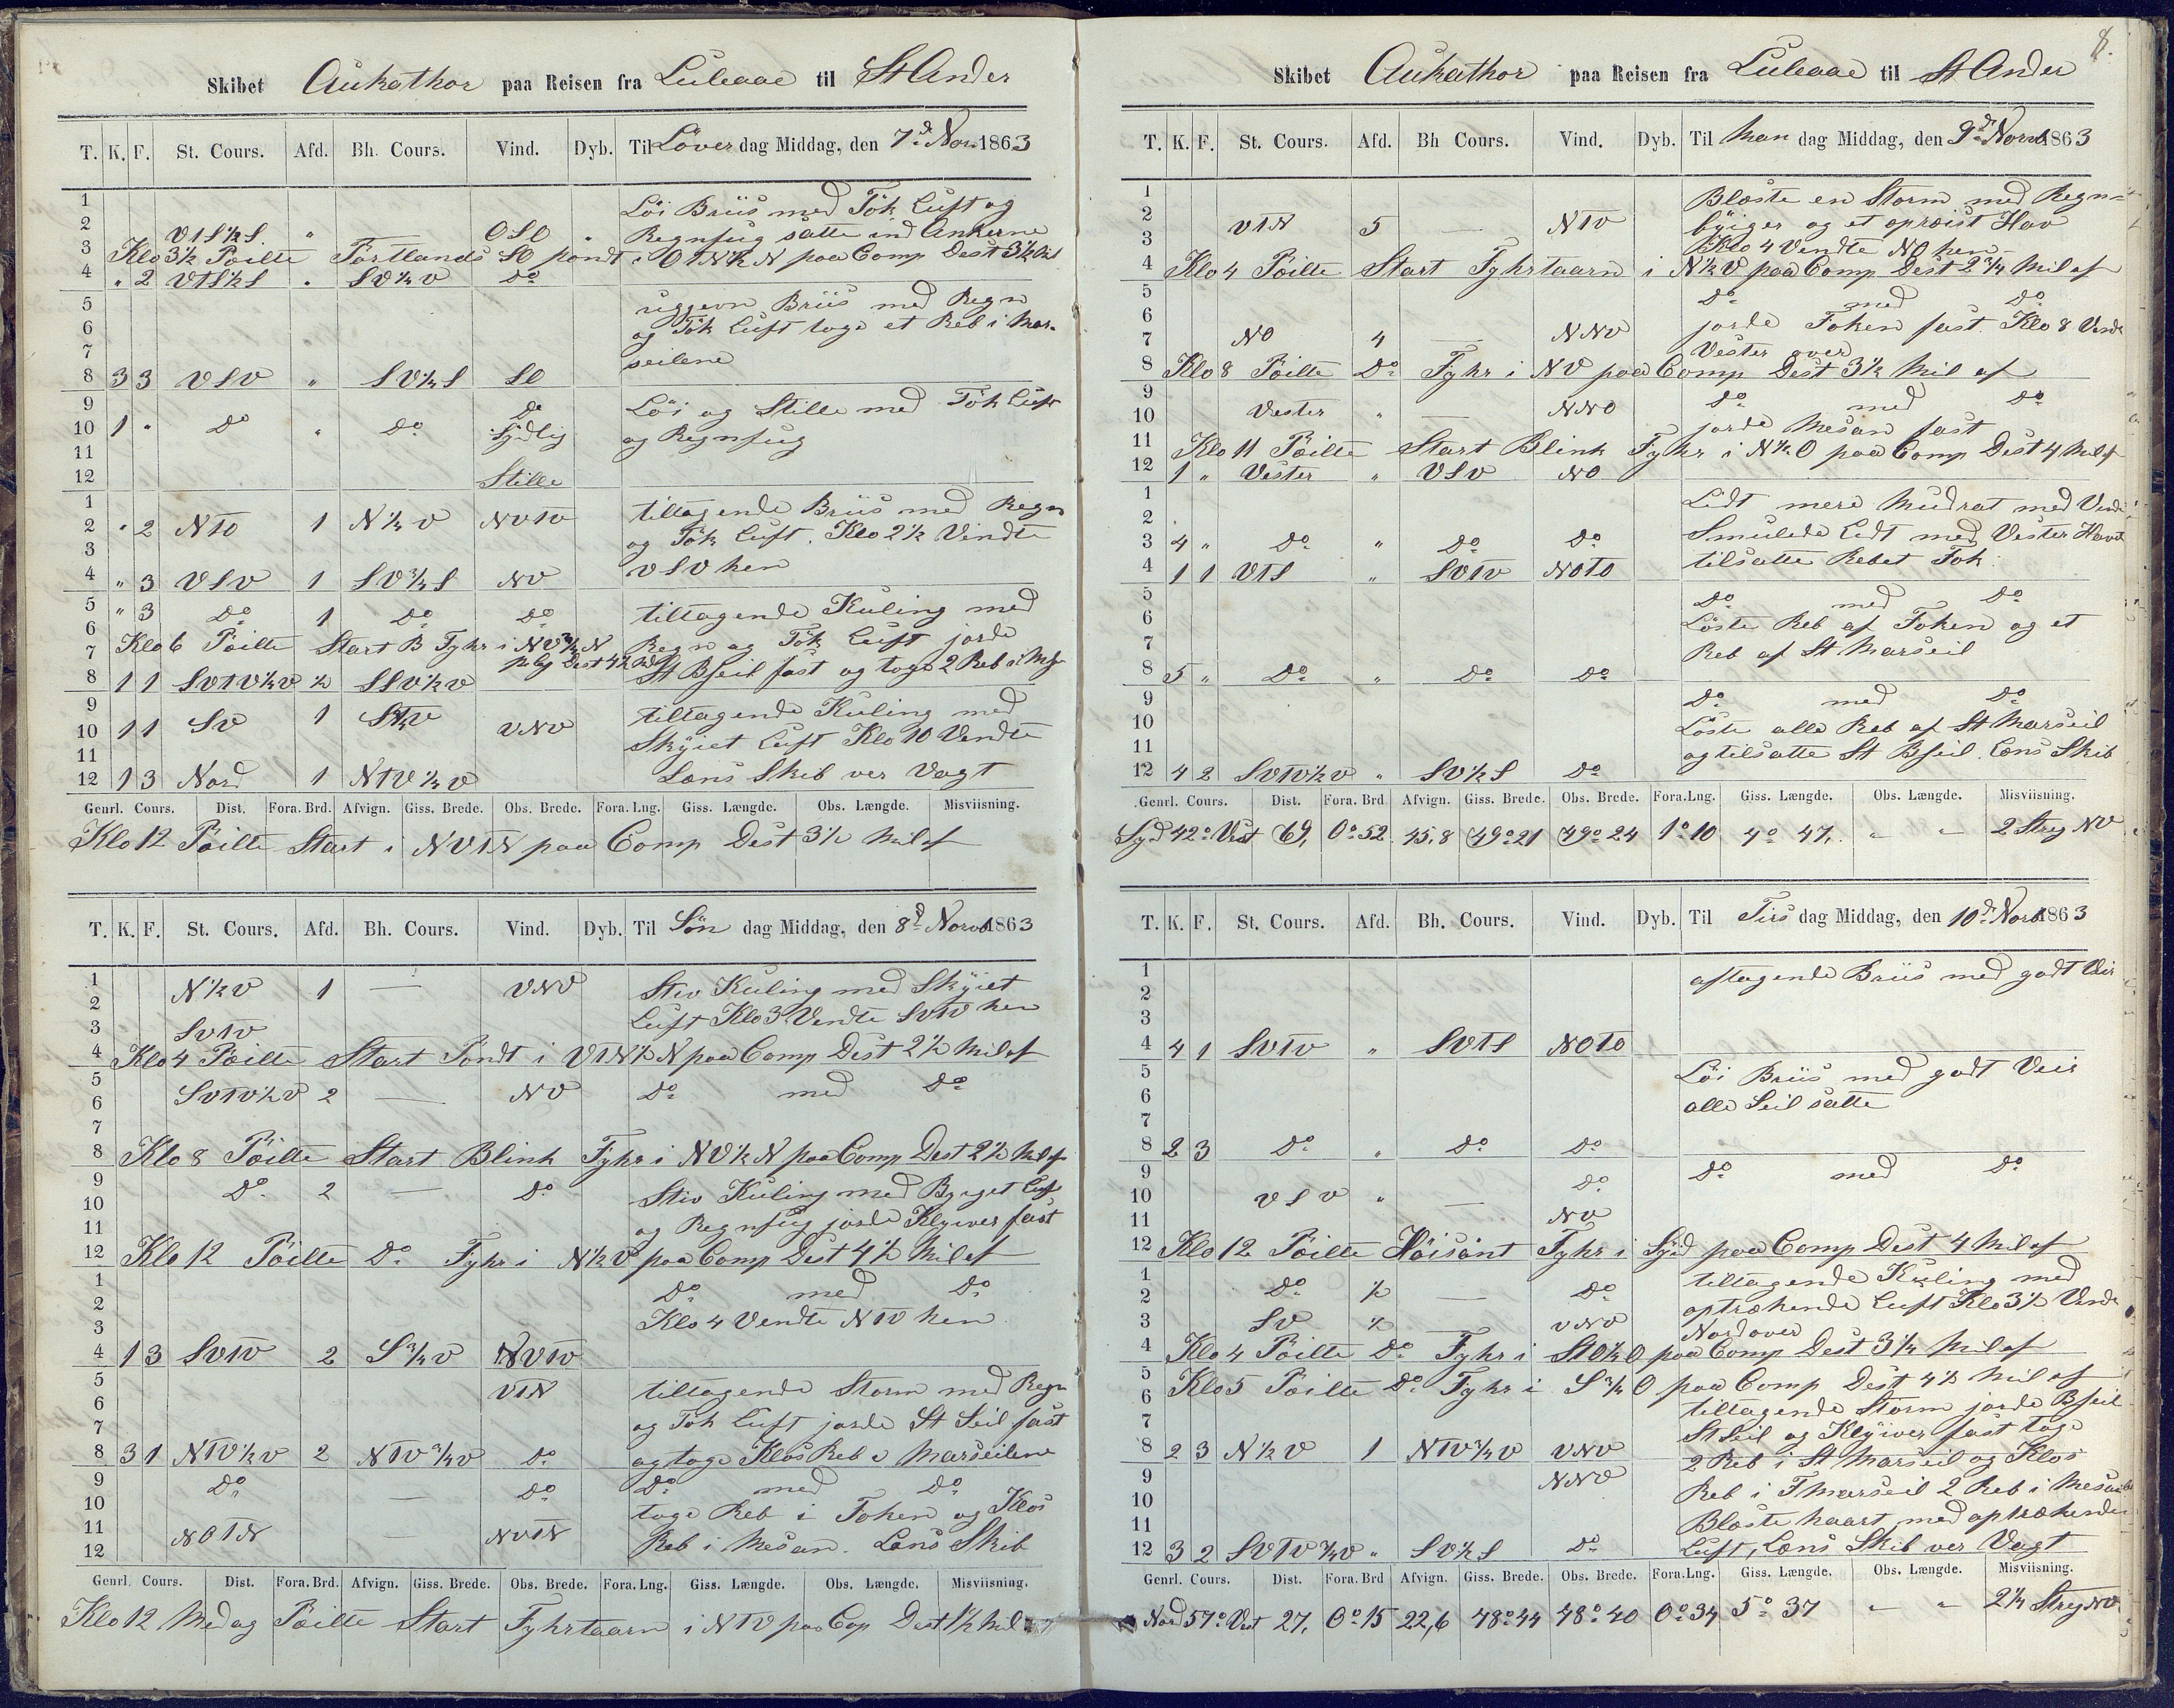 Skibet Aukathor paa Reisen fra Luleaae til St Ander
T. K. F. St. Cours. Afd. Bh. Cours. Vind. Dyb. Til Löver dag Middag, den 7de Nov. 1863
1 Löi Briis med Tök Luft og
2 VTS½S " — OSO " Regnfug satte ind Ankerne
3 Klo 3½ Pöilte Portlands SO pondt i OTN½N paa Comp Dest 3½
4 " 2 VTS½S " SV½V Do
5 uggevn Briis med Regn
6 og Tök Luft toge et Reb i Mar-
7 seilene
8 3 3 VSV " SV½S SO
9 Do Löi og Stille med Tök Luft
10 1 " Do " Do Sydlig og Regnfug
11
12 Stille
1 tiltagende Briis med Regn
2 " 2 NTO 1 N½V NVTV og Tök Luft. Klo 2½ Vendte
3 VSV hen
4 " 3 VSV 1 SV¾S NV
5 " 3 Do 1 Do Do tiltagende Kuling med
6 Klo 6 Pöilte Start B Fyhr i NV¾N Regn og Tök Luft jorde
7 St Bseil fast og toge 2 Reb i
8 1 1 SVTV½V ½ SSV½V
9 tiltagende Kuling med
10 1 1 SV 1 VNV Skÿiet Luft Klo 10 Vendte
11
12 1 3 Nord 1 NTV½V Læns Skib ver Vagt
Genrl. Cours. Dist. Fora. Brd. Afvign. Giss. Brede. Obs. Brede. Fora. Lng. Giss. Længde. Obs. Længde. Misviisning.
Klo 12 Pöilte Start i NVTN paa Comp Dest 3½ Mil af
T. K. F. St. Cours. Afd. Bh. Cours. Vind. Dyb. Til Sön dag Middag, den 8de Novb 1863
1 N½V 1 — VNV Stiv Kuling med Skÿiet
2 Luft Klo 3 Vendte SVTV hen
3 SVTV
4 Klo 4 Pöilte Start Pondt i VTN½N paa Comp Dest 2½ Mil af
5 SVTV½V 2 — NV Do med Do
6
7
8 Klo 8 Pöilte Start Blink Fyhr i NV½N paa Comp Dest 2½ Mil af
9 Do 2 — Do Stiv Kuling med Byget Luft
10 og Regnfug jorde Klyver fast
11
12 Klo 12 Pöilte Do Fyhr i N½V paa Comp Dest 4½ Mil af
1 Do med Do
2 Klo 4 Vendte NTV hen
3
4 1 3 SVTV 2 S¾V NVTV
5 VTN tiltagende Storm med Regn
6 og Tök Luft jorde St Seil fast
7
8 3 1 NTV½V 2 NTV¾V Do og toge Klos Reb i Marseilene
9 Do — Do Do med Do
10 toge Reb i Foken og Klos
11 NOTN — NVTN Reb i Mesan. Læns Skib
12
Genrl. Cours. Dist. Fora. Brd. Afvign. Giss. Brede. Obs. Brede. Fora. Lng. Giss. Længde. Obs. Længde. Misviisning.
Klo 12 Medag Pöilte Start Fyhrtaarn i NTV paa Cop Dest 1½ Mil
8.
Skibet Aukathor paa Reisen fra Luleaae til St Ander
T. K. F. St. Cours. Afd. Bh Cours. Vind. Dyb. Til Man dag Middag, den 9de Novb 1863
1 Blæste en Storm med Regn-
2 VTN 5 — NTV byiger og et opræist Hav
3 Klo 4 Vendte NO hen
4 Klo 4 Pöilte Start Fyhrtaarn i N½V paa Comp Dest 2¾ Mil af
5 Do med Do
6 jorde Foken fast Klo 8 Vendte
7 NO 4 — NNV Vester over
8 Klo 8 Pöilte Do Fyhr i NV paa Comp Dest 3½ Mil af
9 Do med Do
10 Vester " — NNO jorde Mesan fast
11 Klo 11 Pöilte Start Blink Fyhr i N½O paa Comp Dest 4 Mil af
12 1 " Vester " VSV NO
1 Lidt mere Mudrat med Vind
2 Smulede Lidt med Vester Havet
3 4 " Do " Do Do tilsatte Rebet Fok
4 1 1 VTS " SVTV NOTO
5 Do med Do
6 Löste Reb af Foken og et
7 Reb af St Marseil
8 5 " Do " Do Do
9 Do med Do
10 Löste alle Reb af St Marseil
11 og tilsatte St Bseil. Læns Skib
12 4 2 SVTV½V " SV½S Do
Genrl. Cours. Dist. Fora. Brd. Afvign. Giss. Brede. Obs. Brede. Fora. Lng. Giss. Længde. Obs. Længde. Misviisning.
Syd 42° Vest 69, 0° 52. 45,8 49° 21 49° 24 1° 10 4° 47, " " 2 Streg NV
T. K. F. St. Cours. Afd. Bh. Cours. Vind. Dyb. Til Tirs dag Middag, den 10de Novb 1863
1 aftagende Briis med godt Veir
2
3
4 4 1 SVTV " SVTS NOTO
5 Löi Briis med godt Veir
6 alle Seil satte
7
8 2 3 Do " Do Do
9 Do Do med Do
10 VSV " —
11 NV
12 Klo 12 Pöilte Häisant Fyhr i Syd paa Comp Dest 4 Mil af
1 Do ½ — Do tiltagende Kuling med
2 optrækende Luft Klo 3½ Vendte
3 SV ½ — VNV Nord over
4 Klo 4 Pöilte Do Fyhr i STO½O paa Comp Dest 3¼ Mil af
5 Klo 5 Pöilte Do Fyhr i S¾O paa Comp Dest 4½ Mil af
6 tiltagende Storm jorde Bseil
7 St Seil og Klÿiver fast toge
8 2 3 N½V 1 NTV¾V VNV 2 Reb i St Marseil og Klos
9 NNV Reb i F Marseil 2 Reb i Mesan
10 Blæste haart med optrækende
11 Luft, Læns Skib ver Vagt
12 3 2 SVTV¾V " SV½S Do
Genrl. Cours. Dist. Fora. Brd Afvign. Giss. Brede. Obs. Brede. Fora. Lng. Giss. Længde. Obs. Længde. Misviisning.
Nord 57° Vest 27, 0° 15 22,6 48° 44 48° 40 0° 34 5° 37 " " 2¼ Streg NV